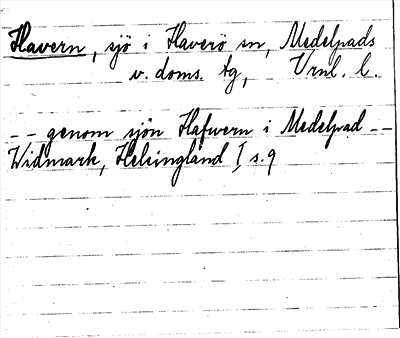 Havern, sjö i Haverö sn, Medelpads
v. doms. tg, Vrnl. l.
-- genom sjön Hafwern i Medelpad --
Widmark, Helsingland I, s. 9